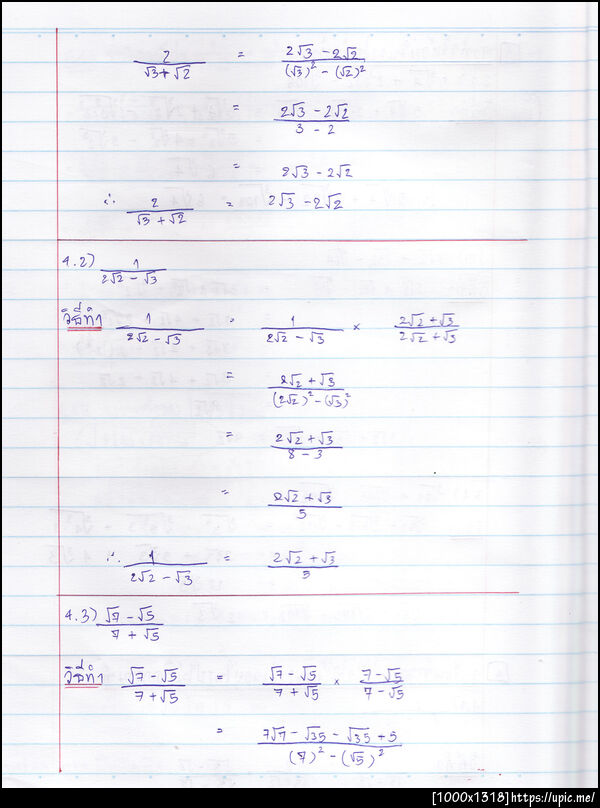 2/(√3+√2) = (2√3 − 2√2)/((√3)² − (√2)²)
= (2√3 − 2√2)/(3 − 2)
= 2√3 − 2√2
∴ 2/(√3 + √2) = 2√3 − 2√2
4.2) 1/(2√2 − √3)
วิธีทำ 1/(2√2 − √3) = 1/(2√2 − √3) × (2√2 + √3)/(2√2 + √3)
= (2√2 + √3)/((2√2)² − (√3)²)
= (2√2 + √3)/(8 − 3)
= (2√2 + √3)/5
∴ 1/(2√2 − √3) = (2√2 + √3)/5
4.3) (√7 − √5)/(7 + √5)
วิธีทำ (√7 − √5)/(7 + √5) = (√7 − √5)/(7 + √5) × (7 − √5)/(7 − √5)
= (7√7 − √35 − √35 + 5)/((7)² − (√5)²)
[1000x1318]https://upic.me/